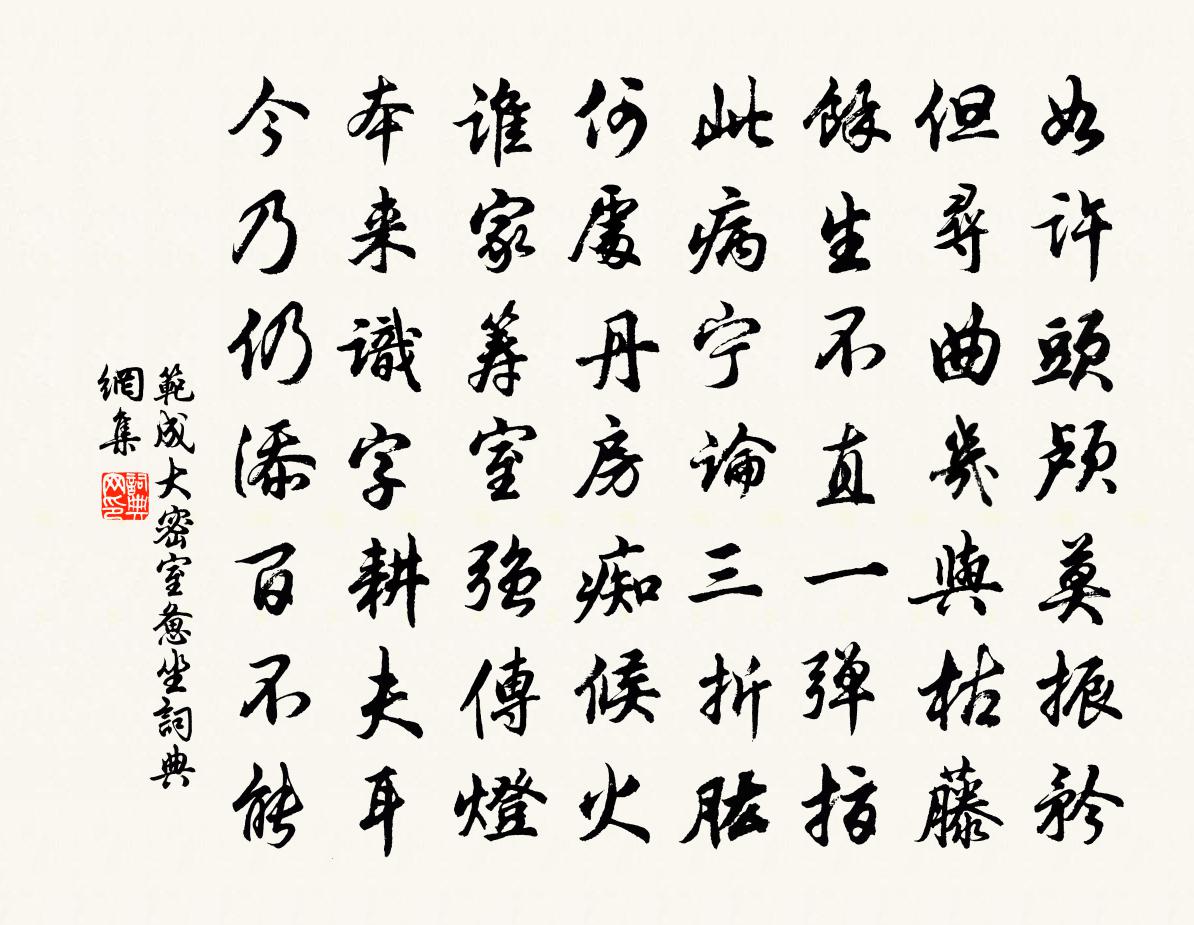 如許頭顱莫振矜
但尋曲几與枯藤
餘生不直一彈指
此病宁論三折肱
何處丹房痴候火
誰家籌室強傳燈
本来識字耕夫耳
今乃仍添百不能
範成大密室憊坐詞典
網集
詞典
网印